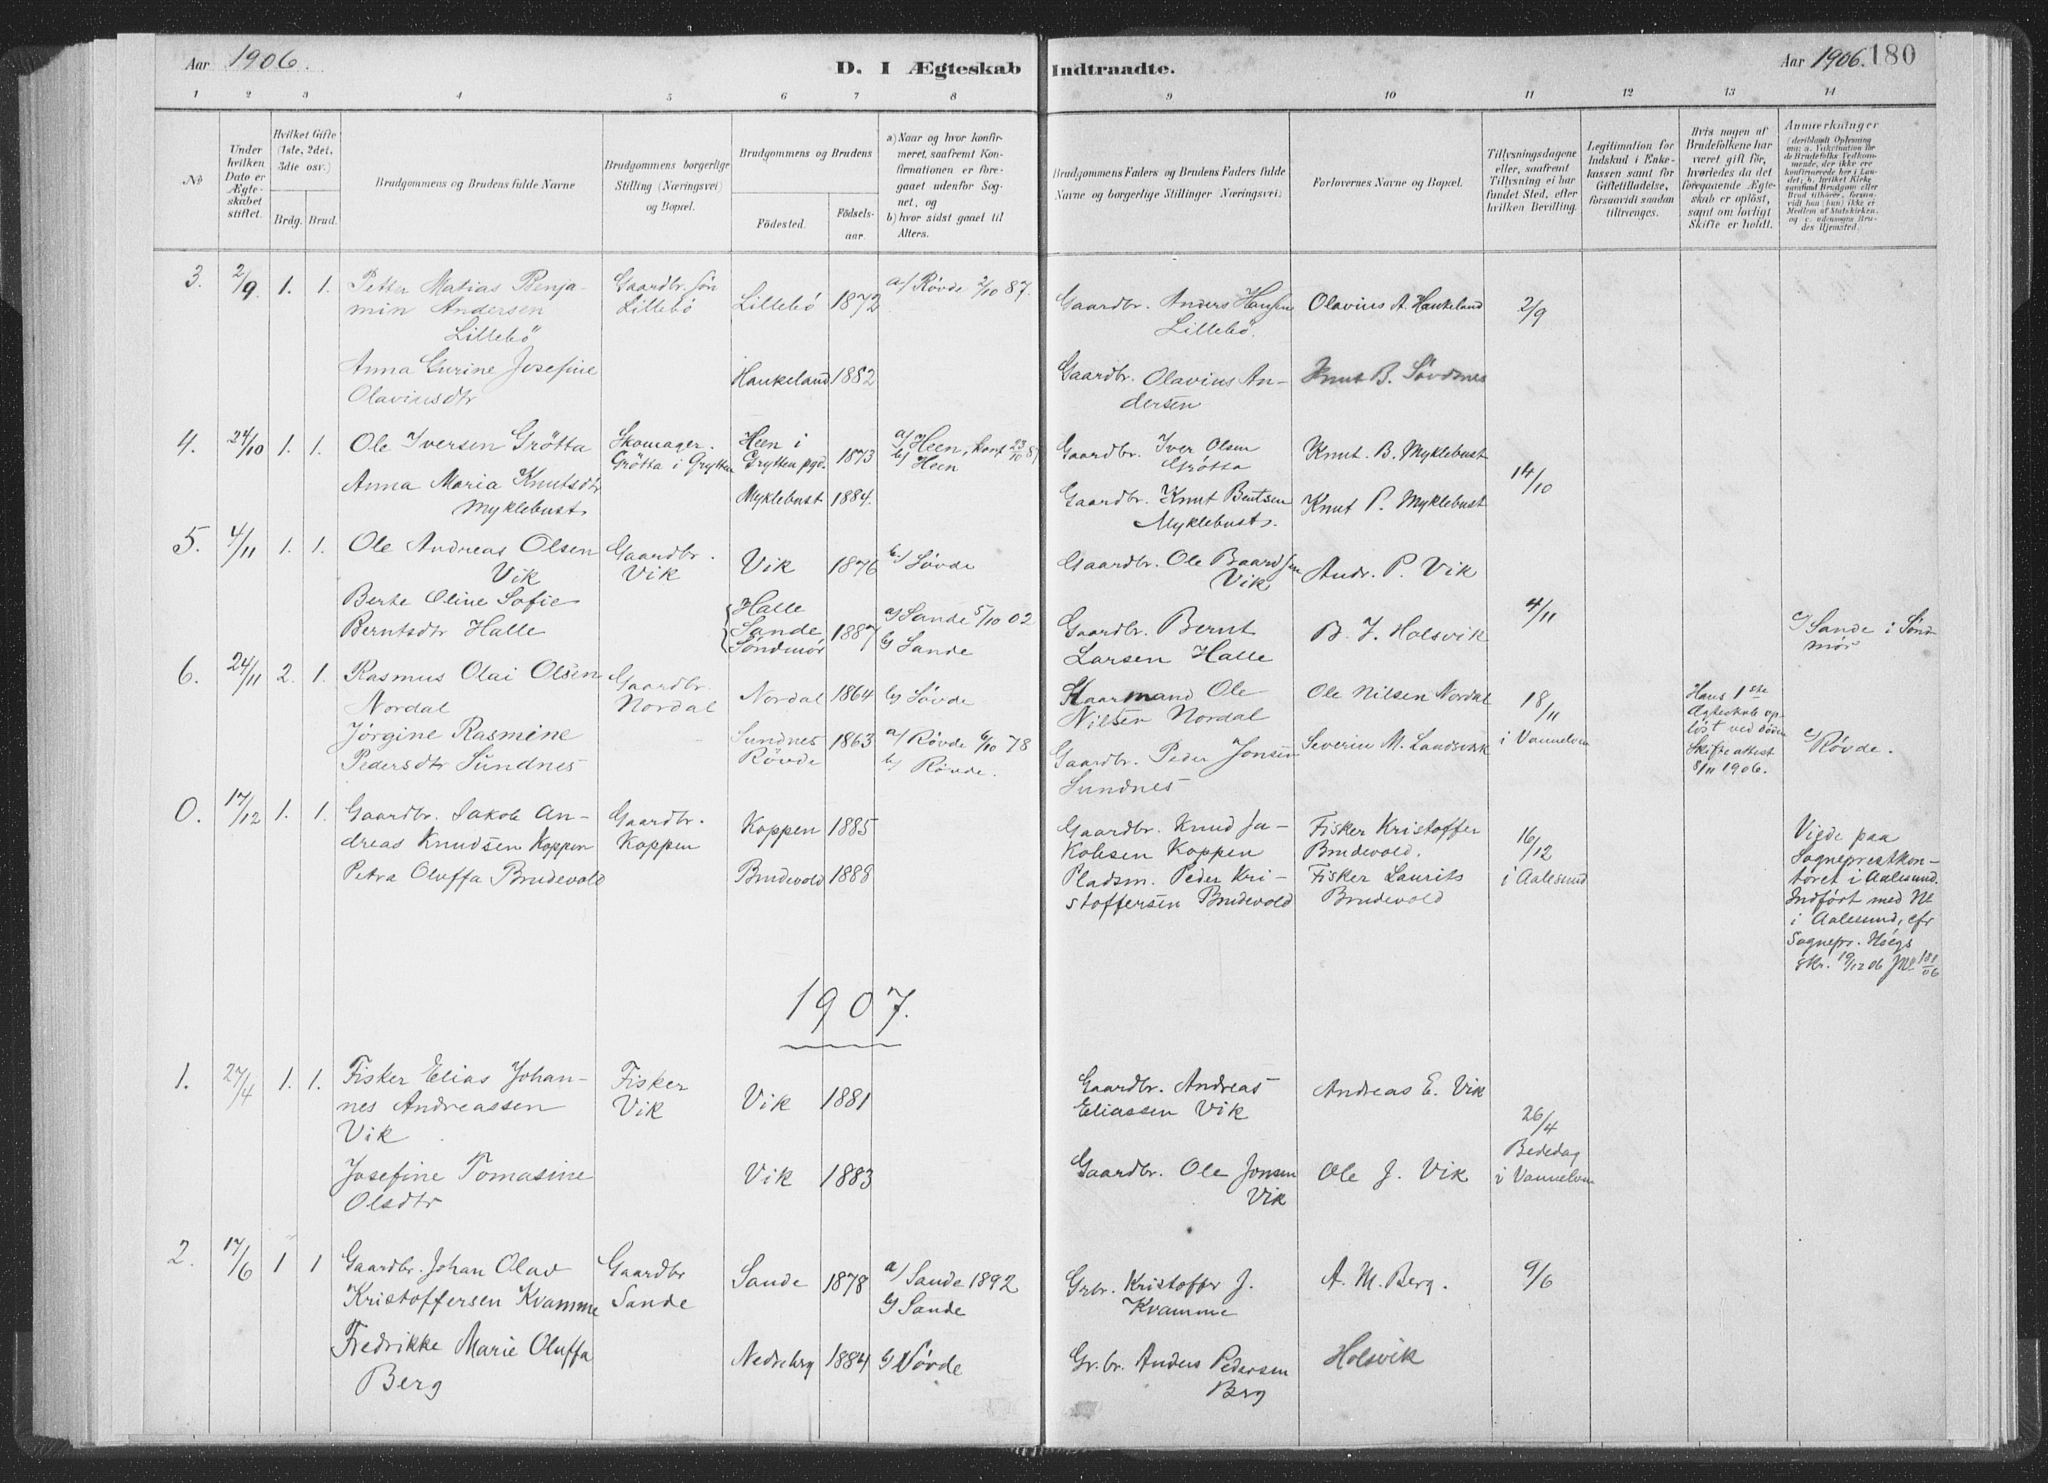 Aar 1906.
D. I Ægteskab Indtraadte.
Aar 1906. 180
1 2 3 4 5 6 7 8 9 10 11 12 13 14
No
Under hvilken Dato er Ægteskabet stiftet.
Hvilket Gifte (1ste, 2det, 3die osv.)
Brdg. Brud.
Brudgommens og Brudens fulde Navne
Brudgommens borgerlige Stilling (Næringsvei) og Bopæl.
Brudgommens og Brudens
Fødested. Fødselsaar.
a) Naar og hvor konfirmeret, saafremt Konfirmationen er foregaaet udenfor Sognet, og
b) hvor sidst gaaet til Alters.
Brudgommens Faders og Brudens Faders fulde Navne og borgerlige Stillinger (Næringsvei).
Forlovernes Navne og Bopæl.
Tillysningsdagene eller, saafremt Tillysning ei har fundet Sted, efter hvilken Bevilling.
Legitimation for Indskud i Enkekassen samt for Giftetilladelse, forsaavidt saadan tiltrænges.
Hvis nogen af Brudefolkene har været gift før, hvorledes da det foregaaende Ægteskab er opløst, samt om lovligt Skifte er holdt.
Anmærkninger
3. 2/9. 1. 1. Petter Matias Benja-
min Andersen
Lillebö
Gaardbr. Søn
Lillebö
Lillebö 1872
a/ Røvde 2/10 87.
Gaardbr. Anders Hansen
Lillebö.
Olavius A. Haukeland
2/9
Anna Gurine Josefine
Olaviusdtr
Haukeland 1882
Gaardbr. Olavius An-
dersen
Knut B. Sövdnes
4. 24/10 1. 1. Ole Iversen Grötta
Skomager.
Grötta i Grytten
Heen i
Grytten pgd. 1873
a/ Heen, konf 23/10 87
b/ Heen
Gaardbr. Iver Olsen
Grötta
Knut. B. Myklebust
14/10
Anna Maria Knutsdtr
Myklebust
Myklebust 1884.
Gaardbr. Knut Bentsen
Myklebust.
Knut P. Myklebust
5. 4/11 1. 1. Ole Andreas Olsen
Vik
Gaardbr.
Vik
Vik 1876
b/ Søvde
Gaardbr. Ole Baardsen
Vik
Andr. P. Vik
4/11
Berte Oline Sofie
Berntsdtr Halle
Halle
Sande
Söndmör 1887
a/ Sande 5/10 02
b/ Sande
Gaardbr. Bernt
Larsen Halle
B. J. Holsvik
c/ Sande i Sønd
mør
6. 24/11 2. 1. Rasmus Olai Olsen
Nordal
Gaardbr.
Nordal
Nordal 1864
b/ Søvde
Kaarmand Ole
Nilsen Nordal
Ole Nilsen Nordal
18/11
i Vannelven
Hans 1ste
Ægteskab op-
löst ved döden
Skifteattest
8/11 1906.
Jørgine Rasmine
Pedersdtr Sundnes
Sundnes
Røvde 1863
a/ Røvde 6/10 78
b/ Røvde.
Gaardbr. Peder Jonsen
Sundnes
Severin M. Landsvik
c/ Røvde.
0. 17/12 1. 1. Gaardbr. Jakob An-
dreas Knudsen Koppen
Gaardbr.
Koppen
Koppen 1885
Gaardbr. Knud Ja-
kobsen Koppen
Fisker Kristoffer
Brudevold.
16/12
i Aalesund
Petra Oluffa Brudevold
Brudevold 1888
Pladsm. Peder Kri-
stoffersen Brudevold
Fisker Laurits
Brudevold
Vigde paa
Sogneprestkon-
toret i Aalesund.
Indført med №
i Aalesund, cfr
Sognepr. Høegs
skr. 19/12 06 JNo 181/06
1907.
1. 27/4 1. 1. Fisker Elias Johan-
nes Andreassen
Vik
Fisker
Vik
Vik 1881
Gaardbr. Andreas
Eliassen Vik
Andreas E. Vik
26/4
Bededag
i Vannelven
Josefine Tomasine
Olsdtr
Vik 1883
Gaardbr. Ole Jonsen
Vik
Ole J. Vik
2. 17/6 1 1 Gaardbr. Johan Olav
Kristoffersen Kvamme
Gaardbr
Sande
Sande 1878
a/ Sande 1892
b/ Sande
Grbr. Kristoffer J.
Kvamme
A. M. Berg.
9/6
Fredrikke Marie Oluffa
Berg
Nedreberg 1884
b/ Søvde
Gr.br. Anders Pedersen
Berg
Holsvik